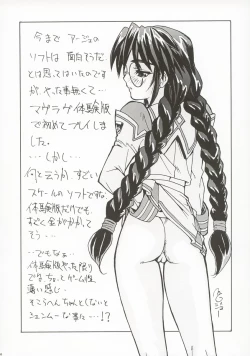 今まで アージュの
ソフトは 面白そうだ
とは思ってはいたのです
が、やった事無くて…
マヴラヴ体験版
で初めてプレイしま
した。
…しかし…
何と云うか、すごい
スケールのソフトですな。
体験版だけでも、
すごく金がかかって
そう…
…でもなぁ…
体験版やった限り
では、ちょっとゲーム性
薄い感じ…
そこらへんちゃんとしないと
シェンムーな事に…!?